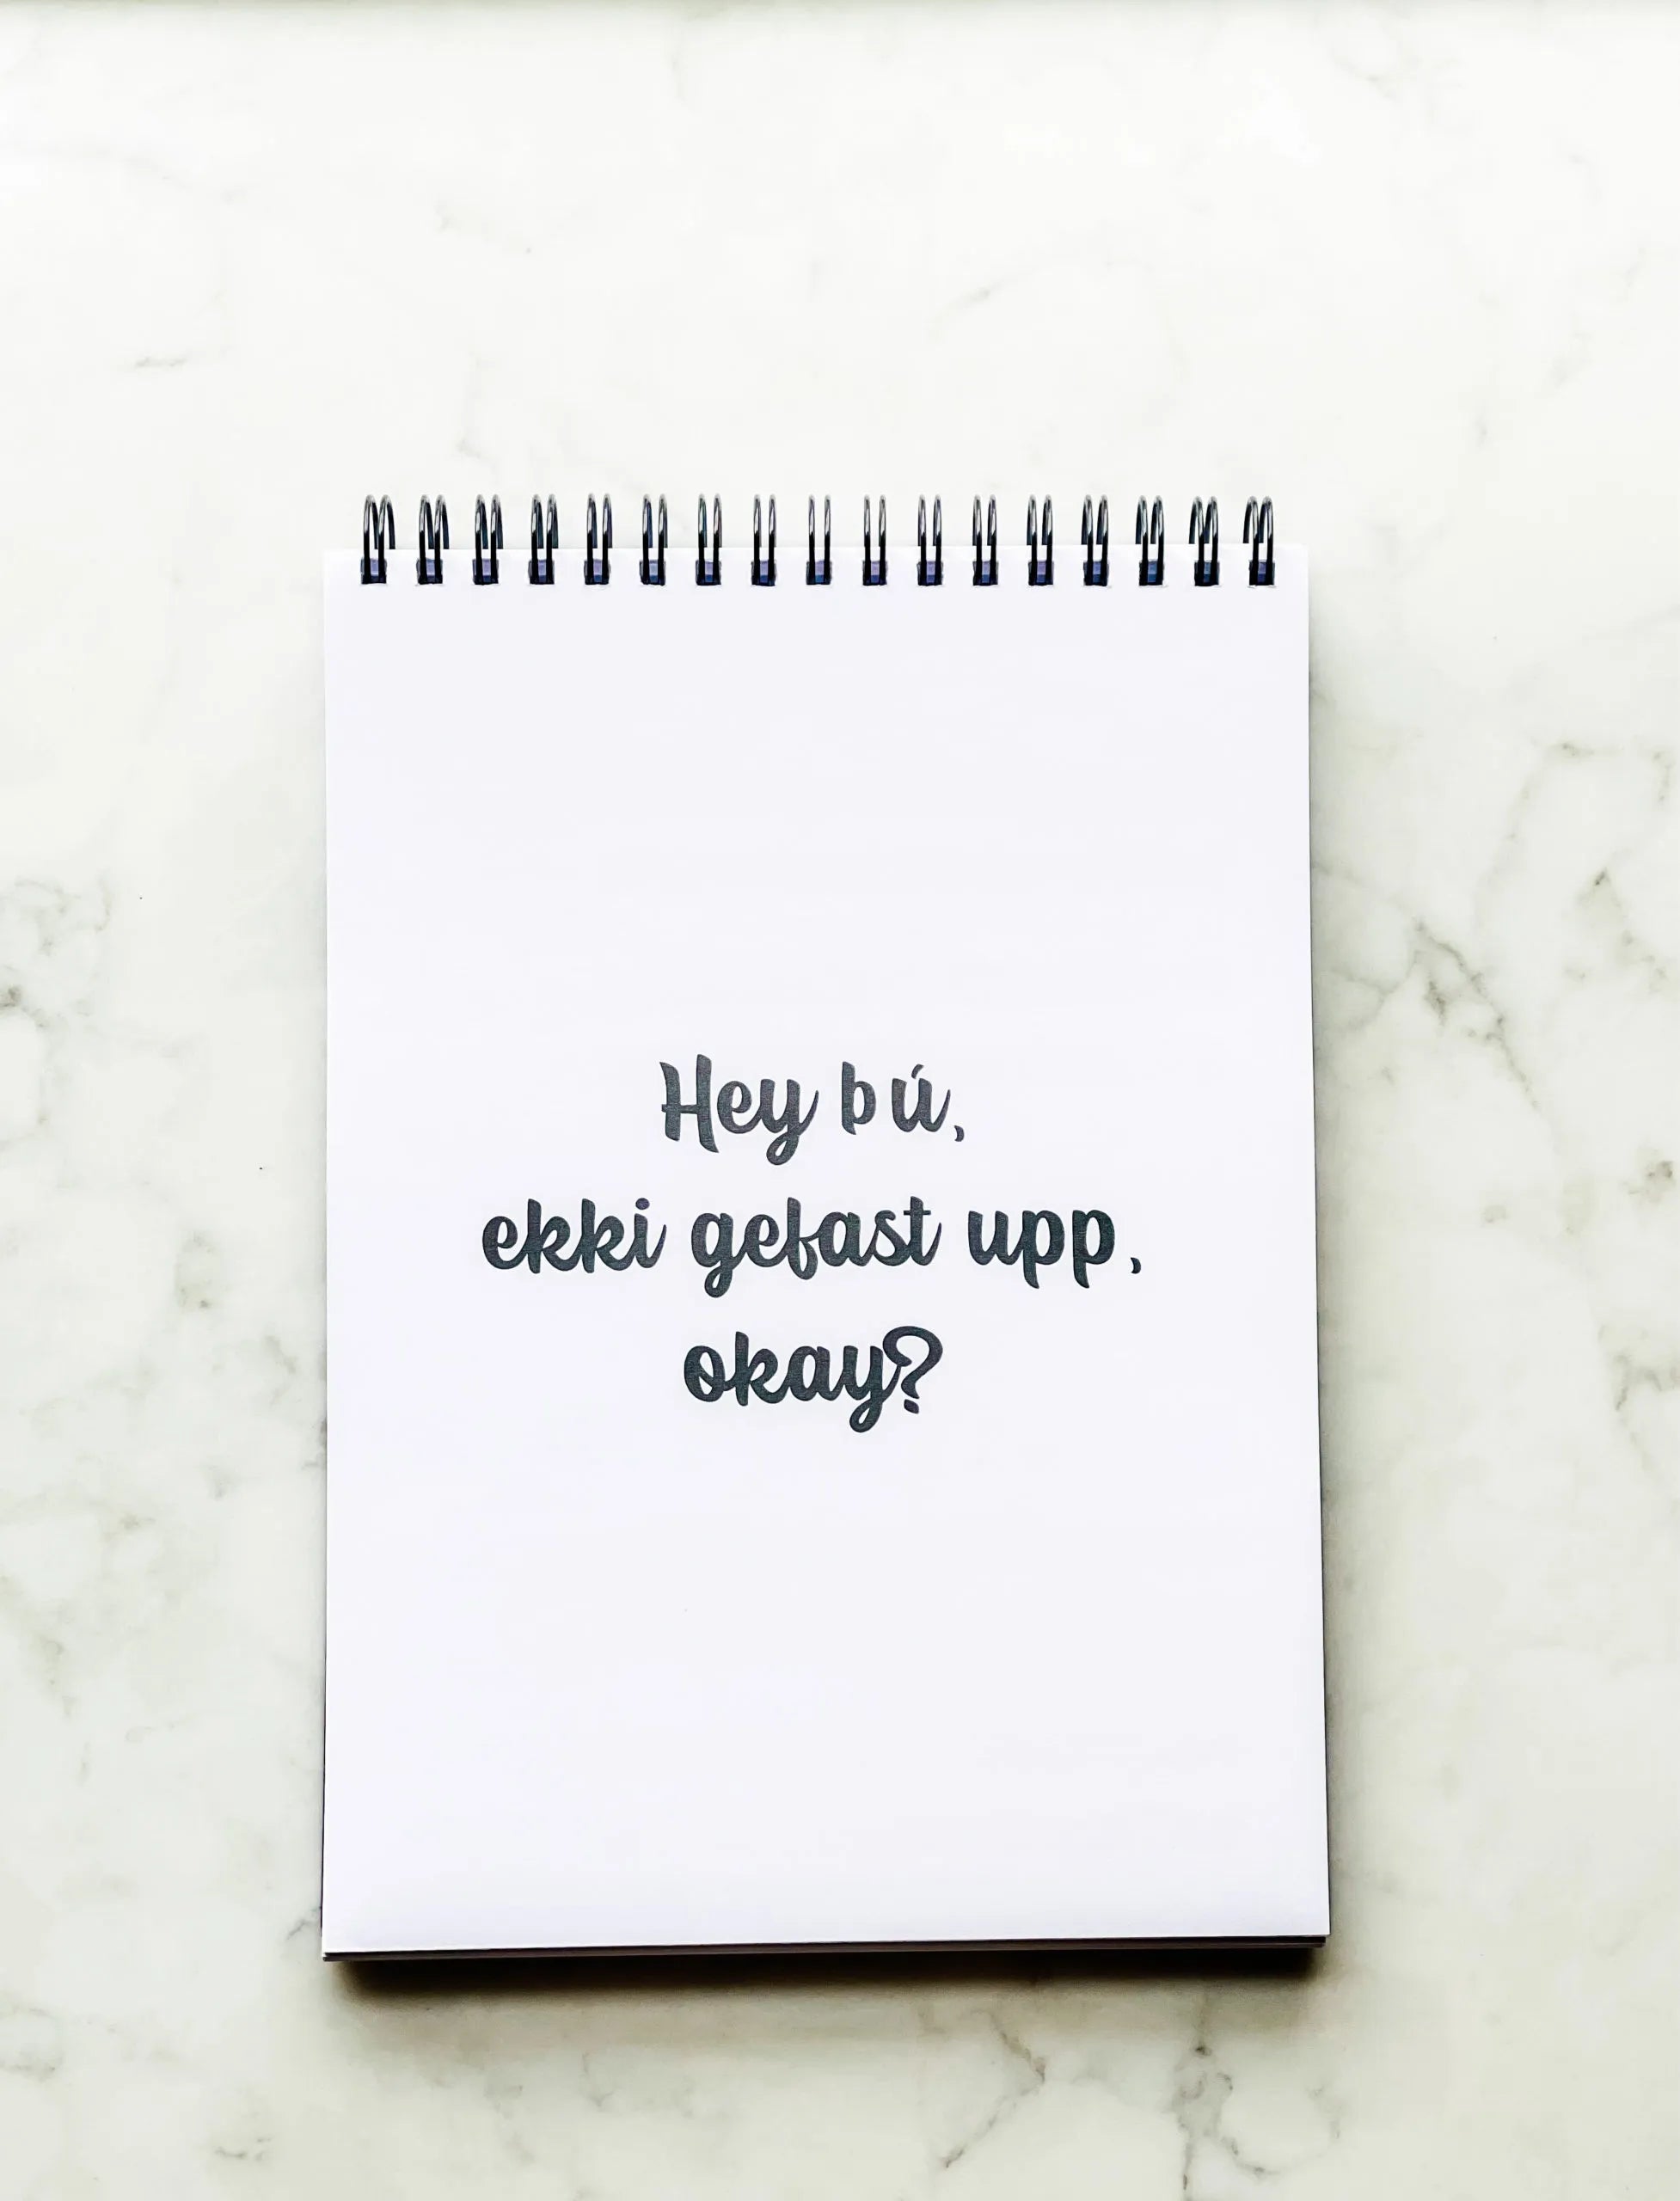 Hey þú,
ekki gefast upp,
okay?